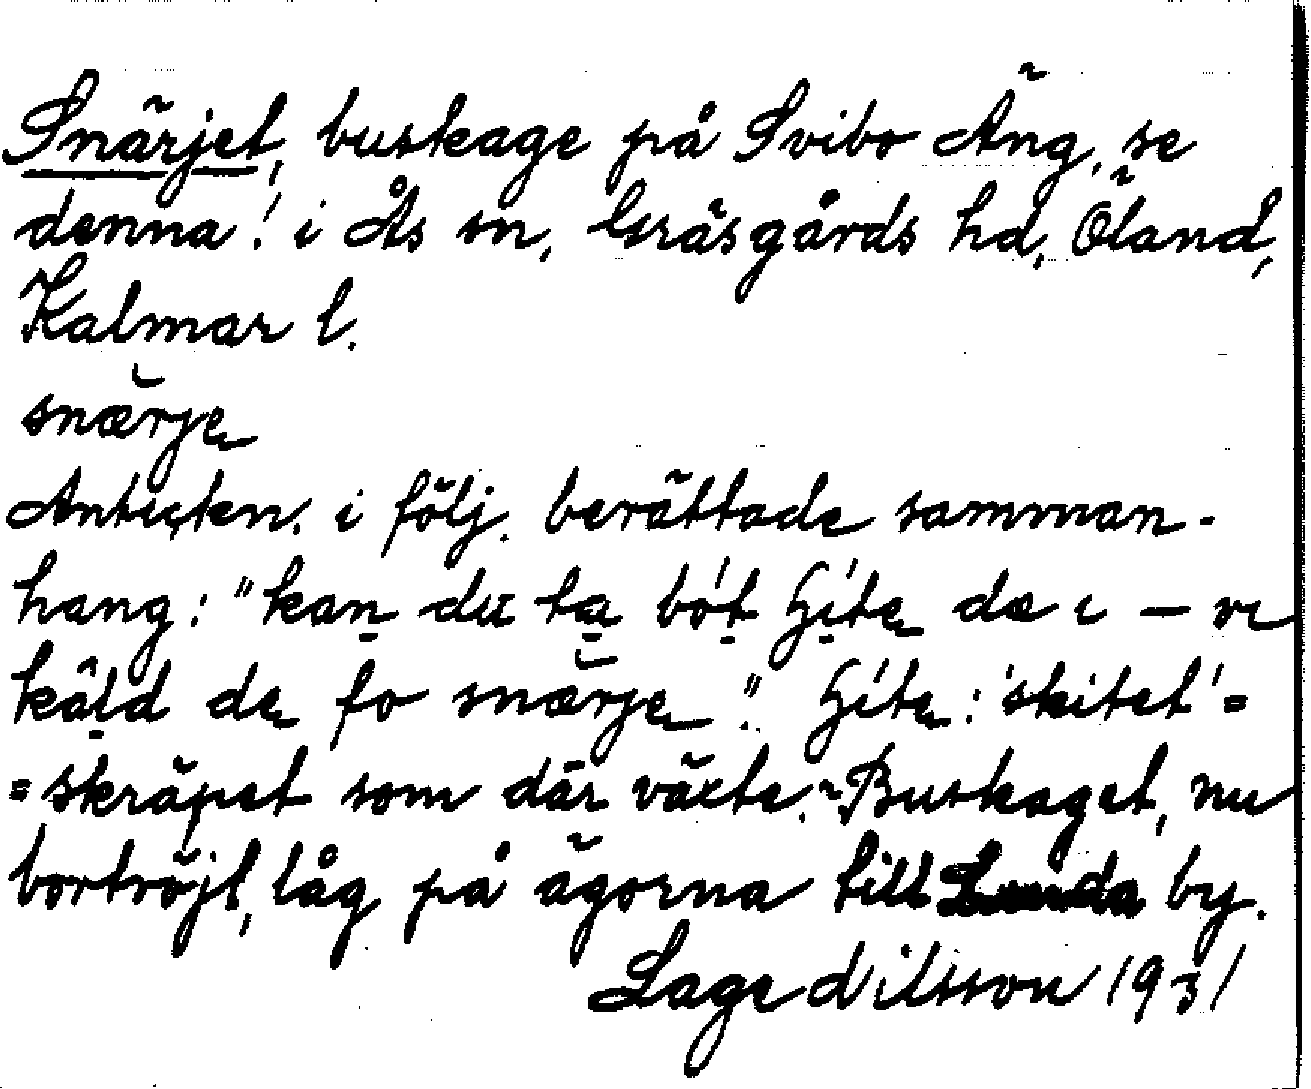 Snärjet, buskage på Svibo Äng, se
denna! i Ås sn, Gräsgårds hd, Öland,
Kalmar l.
snærje
Anteckn. i följ. berättade samman-
hang: "kan du ta bót ʃíte dæ ı — vı
käld de fo snærje". ʃíte: 'skitet' =
= skräpet som där växte. Buskaget, nu
bortröjt, låg på ägorna till by.
Lage Nilsson 1931